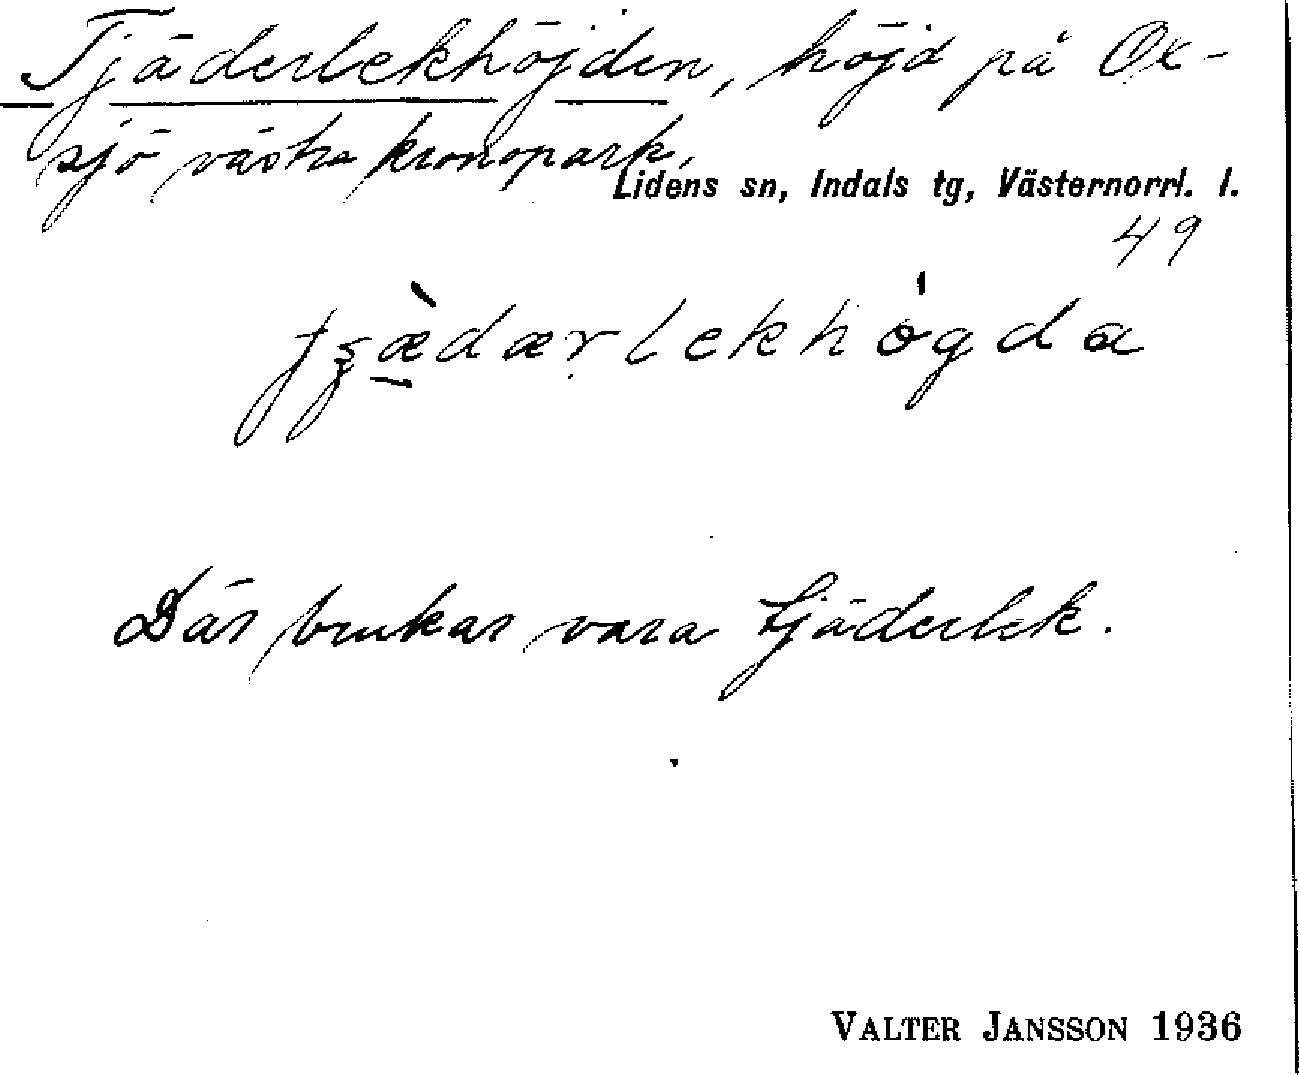 Tjäderlekhöjden, höjd på Ox-
sjö västra kronopark,
Lidens sn, Indals tg, Västernorrl. l.
49
Där brukar vara tjäderlek.
VALTER JANSSON 1936